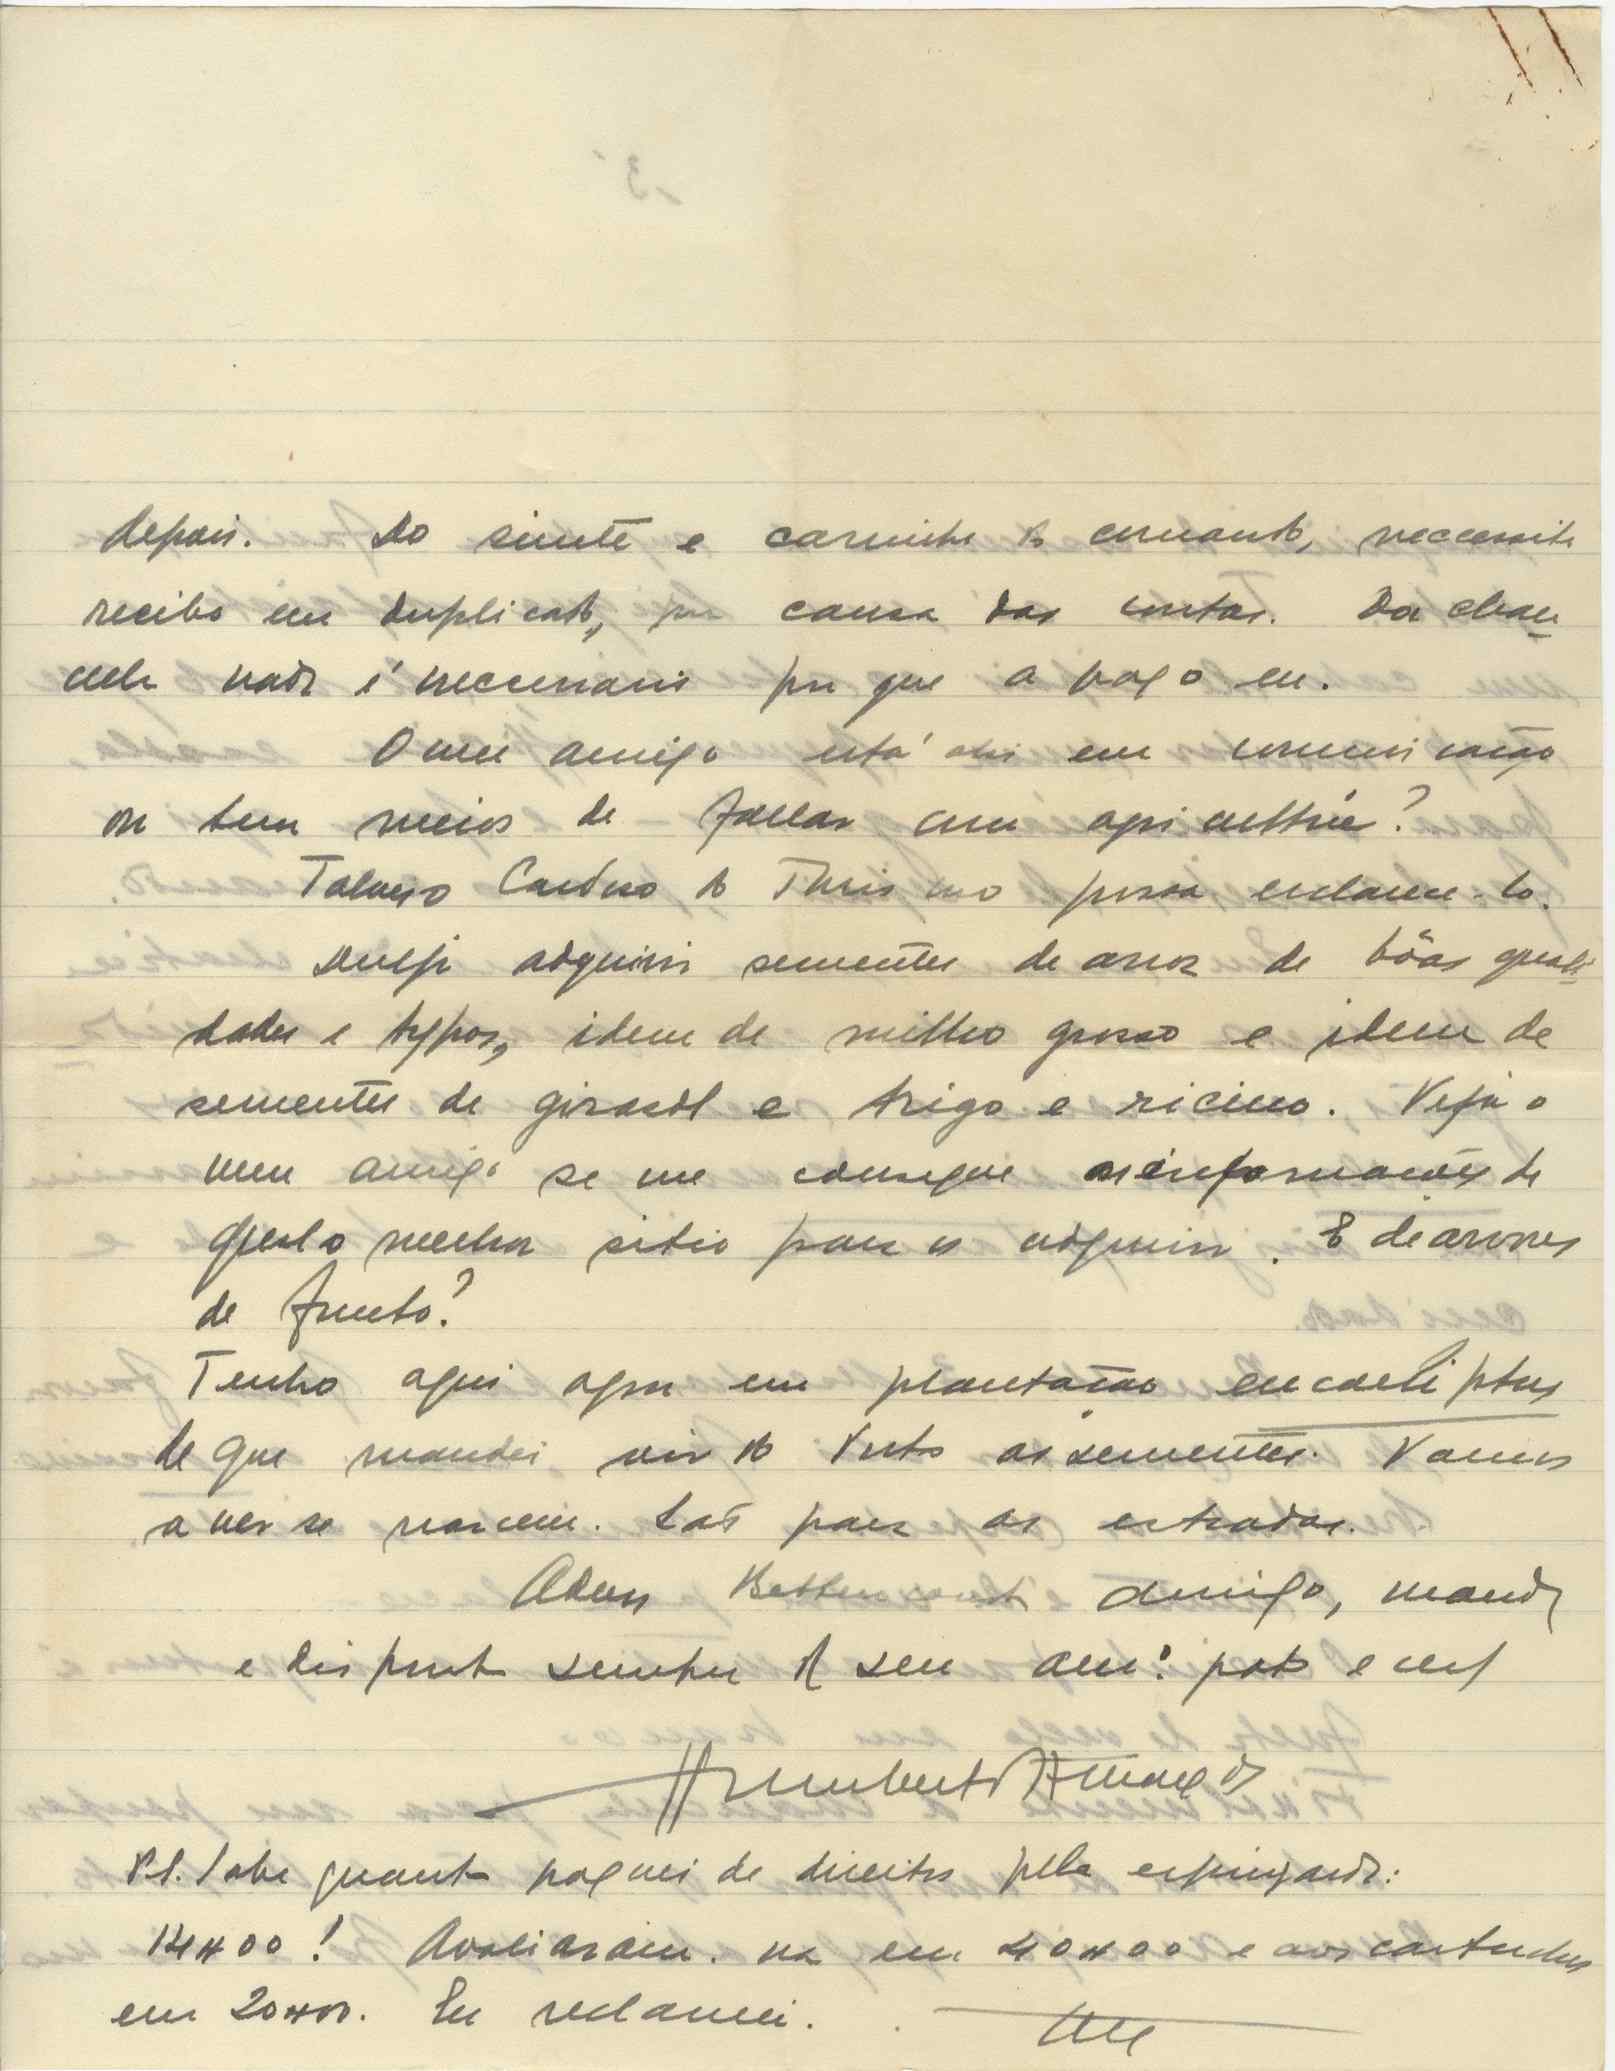 depois. Do sinete e carimbo do comando, neccessito
recibo em duplicado, por causa das contas. Da chan-
cela nada é neccessario por que a pago eu.
O meu amigo está ahi em comunicação
ou tem meios de fallar com agricultura?
Talvez o Cardoso do Turismo possa esclarece-lo.
Desejo adquirir sementes de arroz de bôas quali-
dades e typos, idem de milho grosso e idem de
sementes de girasol e trigo e ricino. Veja o
meu amigo se me consegue informações de
qual o melhor sitio para as adquirir. E de arvores
de fructo?
Tenho aqui agora em plantação eucaliptus
de que mandei vir do Porto as sementes. Vamos
a ver se nascem. São para as estradas.
Adeus Bettencourt amigo, manda
e disponha sempre do seu am.º
Humberto
P.S. Sabe quanto paguei de direitos pela espingarda:
Avaliaram-na em 40$00 e aos cartuchos
em 20$00. Eu reclamei.